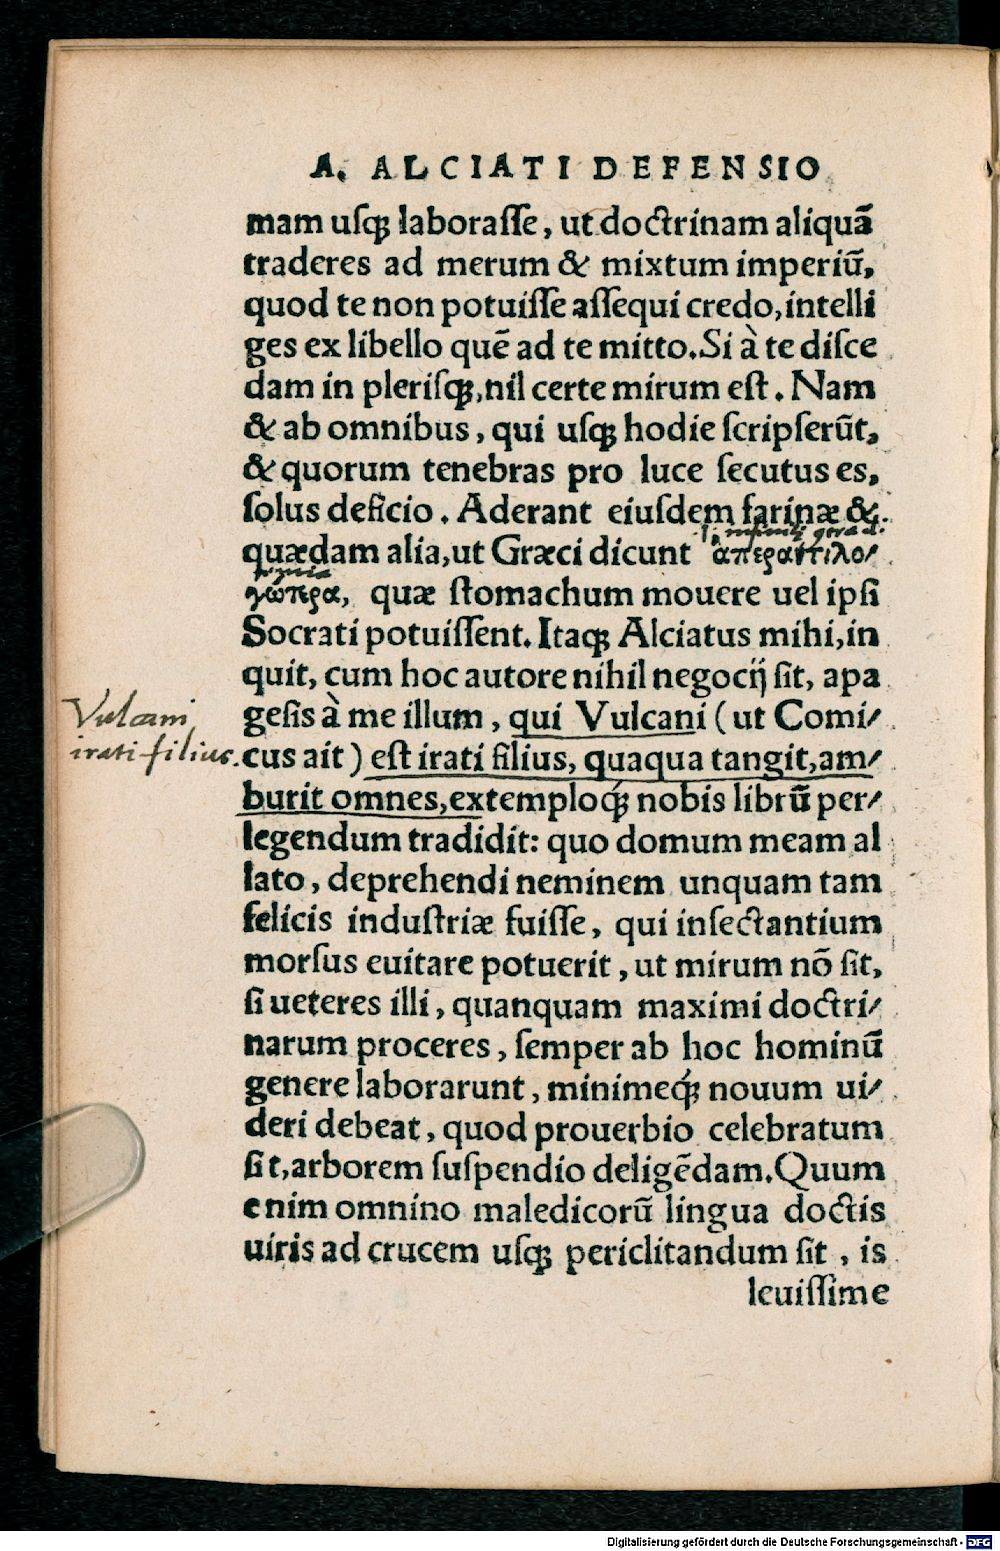 A. ALCIATI DEFENSIO
mam uſq; laboraſſe, ut doctrinam aliquā
traderes ad merum & mixtum imperiū,
quod te non potuiſſe aſſequi credo, intelli
ges ex libello quē ad te mitto. Si à te diſce
dam in pleriſq;, nil certe mirum eſt. Nam
& ab omnibus, qui uſq; hodie ſcripſerūt,
& quorum tenebras pro luce ſecutus es,
ſolus deficio. Aderant eiuſdem farinæ &
quædam alia, ut Græci dicunt
quæ ſtomachum mouere uel ipſi
Socrati potuiſſent. Itaq; Alciatus mihi, in
quit, cum hoc autore nihil negocij ſit, apa
geſis à me illum, qui Vulcani (ut Comi/
Vulcani
irati filius.
cus ait) eſt irati filius, quaqua tangit, am/
burit omnes, extemploq́; nobis librū per/
legendum tradidit: quo domum meam al
lato, deprehendi neminem unquam tam
felicis induſtriæ fuiſſe, qui inſectantium
morſus euitare potuerit, ut mirum nō ſit,
ſi ueteres illi, quanquam maximi doctri/
narum proceres, ſemper ab hoc hominū
genere laborarunt, minimeq́; nouum ui/
deri debeat, quod prouerbio celebratum
ſit, arborem ſuſpendio deligēdam. Quum
enim omnino maledicorū lingua doctis
uiris ad crucem uſq; periclitandum ſit, is
leuiſſime
Digitalisierung gefördert durch die Deutsche Forschungsgemeinschaft - DFG